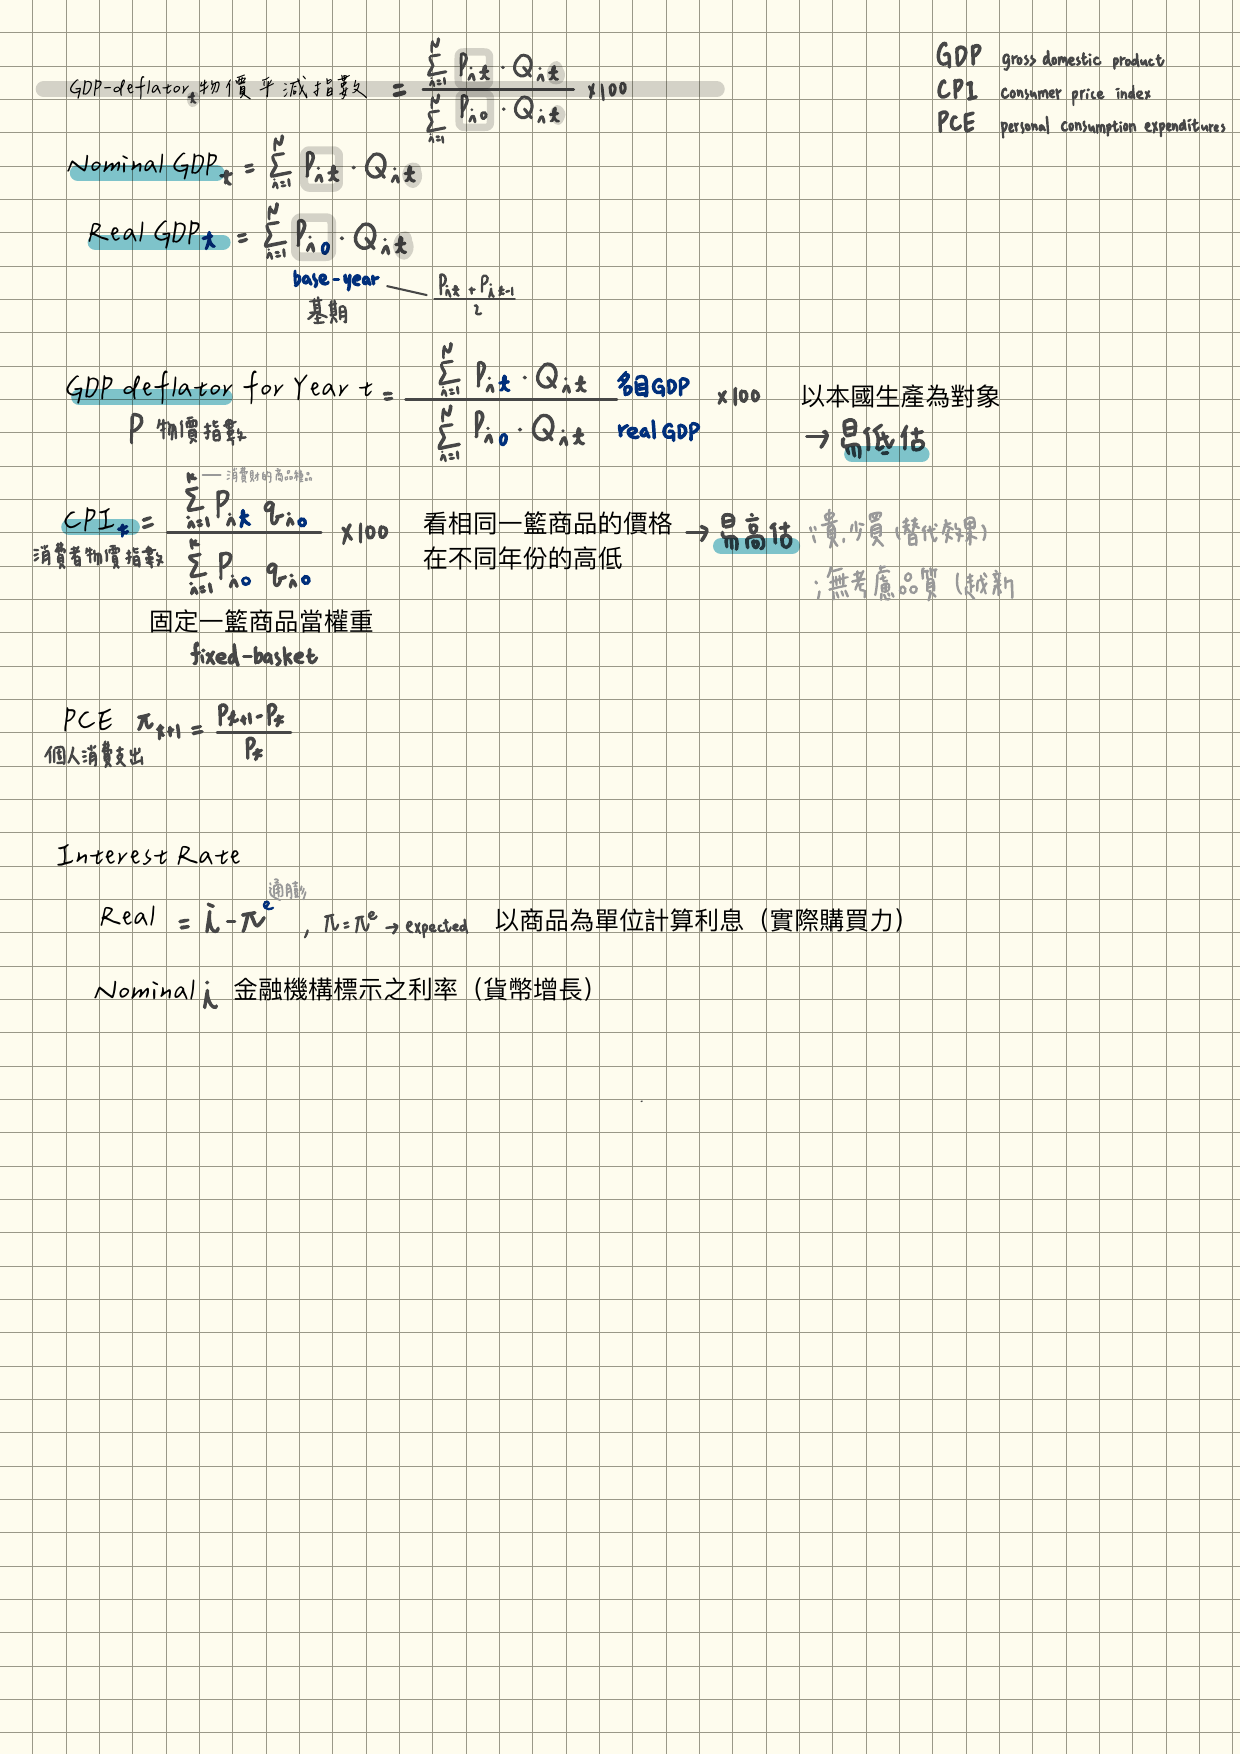 GDP gross domestic product
CPI consumer price index
PCE personal consumption expenditures
GDP-deflator_t 物價平減指數 = \frac{\sum_{i=1}^{N} P_{it} · Q_{it}}{\sum_{i=1}^{N} P_{i0} · Q_{it}} ×100
Nominal GDP_t = \sum_{i=1}^{N} P_{it} · Q_{it}
Real GDP_t = \sum_{i=1}^{N} P_{i0} · Q_{it}
base-year — \frac{P_{it} + P_{it-1}}{2}
基期
GDP deflator for Year t = \frac{\sum_{i=1}^{N} P_{it} · Q_{it}}{\sum_{i=1}^{N} P_{i0} · Q_{it}} 名目GDP real GDP ×100 以本國生產為對象
P 物價指數
→ 易低估
— 消費財的商品種品
CPI_t = \frac{\sum_{i=1}^{K} P_{it} q_{i0}}{\sum_{i=1}^{K} P_{i0} q_{i0}} ×100 看相同一籃商品的價格 → 易高估 ∵貴,少買(替代效果)
消費者物價指數
在不同年份的高低
;無考慮品質(越新
固定一籃商品當權重
fixed-basket
PCE π_{t+1} = \frac{P_{t+1} - P_t}{P_t}
個人消費支出
Interest Rate
通膨
Real = i - π^e , π = π^e → expected 以商品為單位計算利息(實際購買力)
Nominal i 金融機構標示之利率(貨幣增長)